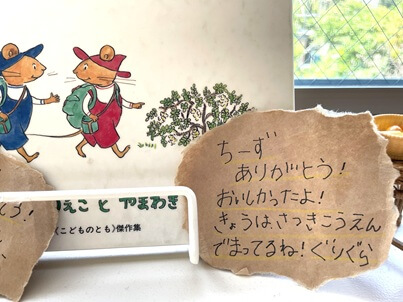 えこ と やまわき
〈こどものとも〉傑作集
う!
ちーず
ありがとう!
おいしかったよ!
きょうは、さつきこうえん
でまってるね!ぐりぐら